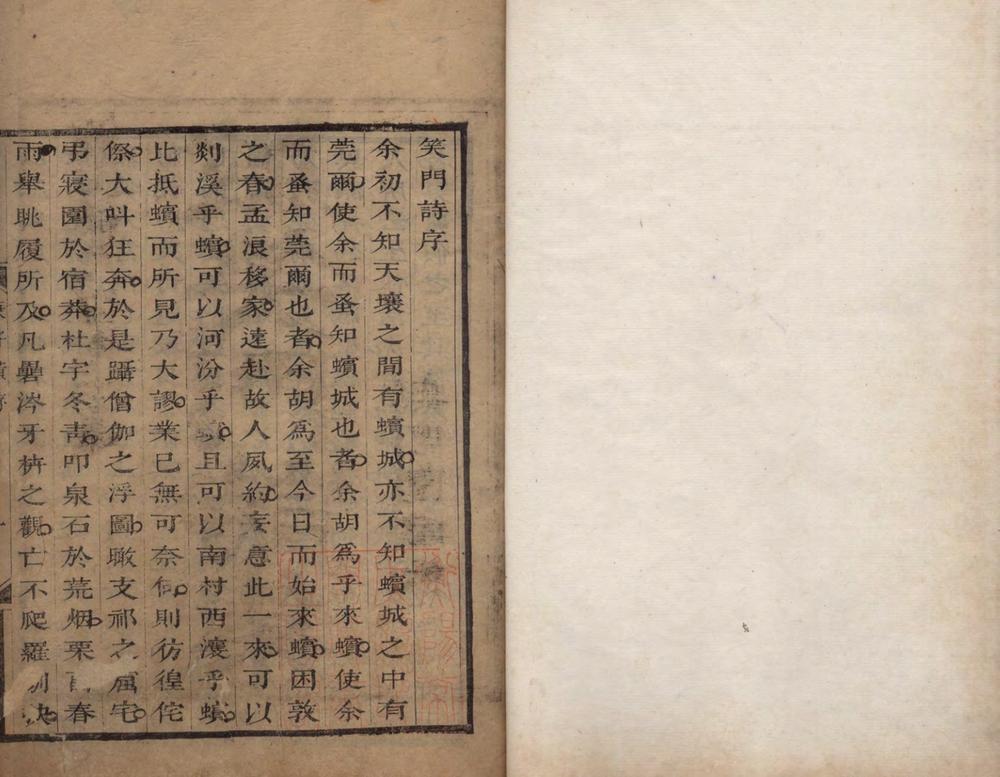 笑門詩序
余初不知天壤之間有蠙城亦不知蠙城之中有
莞爾使余而蚤知蠙城也者余胡爲乎來蠙使余
而蚤知莞爾也者余胡爲至今日而始來蠙困敦
之春孟浪移家遠赴故人夙約妄意此一來可以
剡溪乎蠙可以河汾乎且可以南村西瀼乎蠙
比抵蠙而所見乃大謬業已無可奈何則彷徨侘
傺大呌狂奔於是躡僧伽之浮圖瞰支祁之宅
弔寢園於宿莽杜宇冬靑叩泉石於荒烟栗春
雨舉眺履所及凡礨涔牙枿之觀亡不爬羅